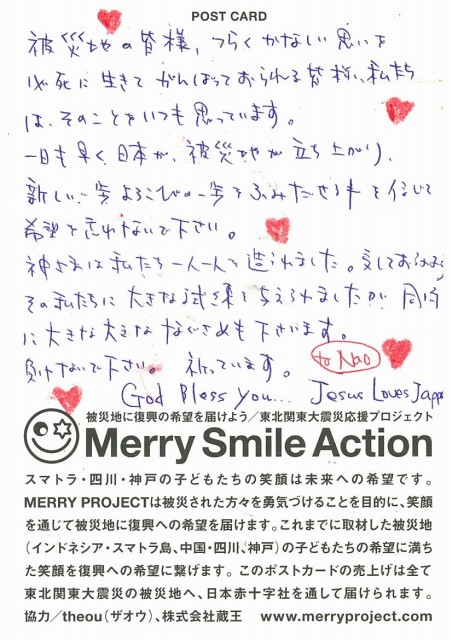 POST CARD
被災地の皆様、つらくかなしい思いを
必死に生きてがんばっておられる皆様、私たち
は、そのことをいつも思っています。
一日も早く、日本が、被災地が立ち上がり、
新しい一歩よろこびの一歩をふみだせる事を信じて
希望を忘れないで下さい。
神さまは私たち一人一人を造られました。愛しておられる
その私たちに大きな試練を与えられましたが 同時
に大きな大きななぐさめも下さいます。
負けないで下さい。祈っています。
to Nao
God Bless you... Jesus Loves Japa
被災地に復興の希望を届けよう／東北関東大震災応援プロジェクト
Merry Smile Action
スマトラ・四川・神戸の子どもたちの笑顔は未来への希望です。
MERRY PROJECTは被災された方々を勇気づけることを目的に、笑顔
を通じて被災地に復興への希望を届けます。これまでに取材した被災地
（インドネシア・スマトラ島、中国・四川、神戸）の子どもたちの希望に満ち
た笑顔を復興への希望に繋げます。このポストカードの売上げは全て
東北関東大震災の被災地へ、日本赤十字社を通して届けられます。
協力／theou（ザオウ）、株式会社蔵王 www.merryproject.com